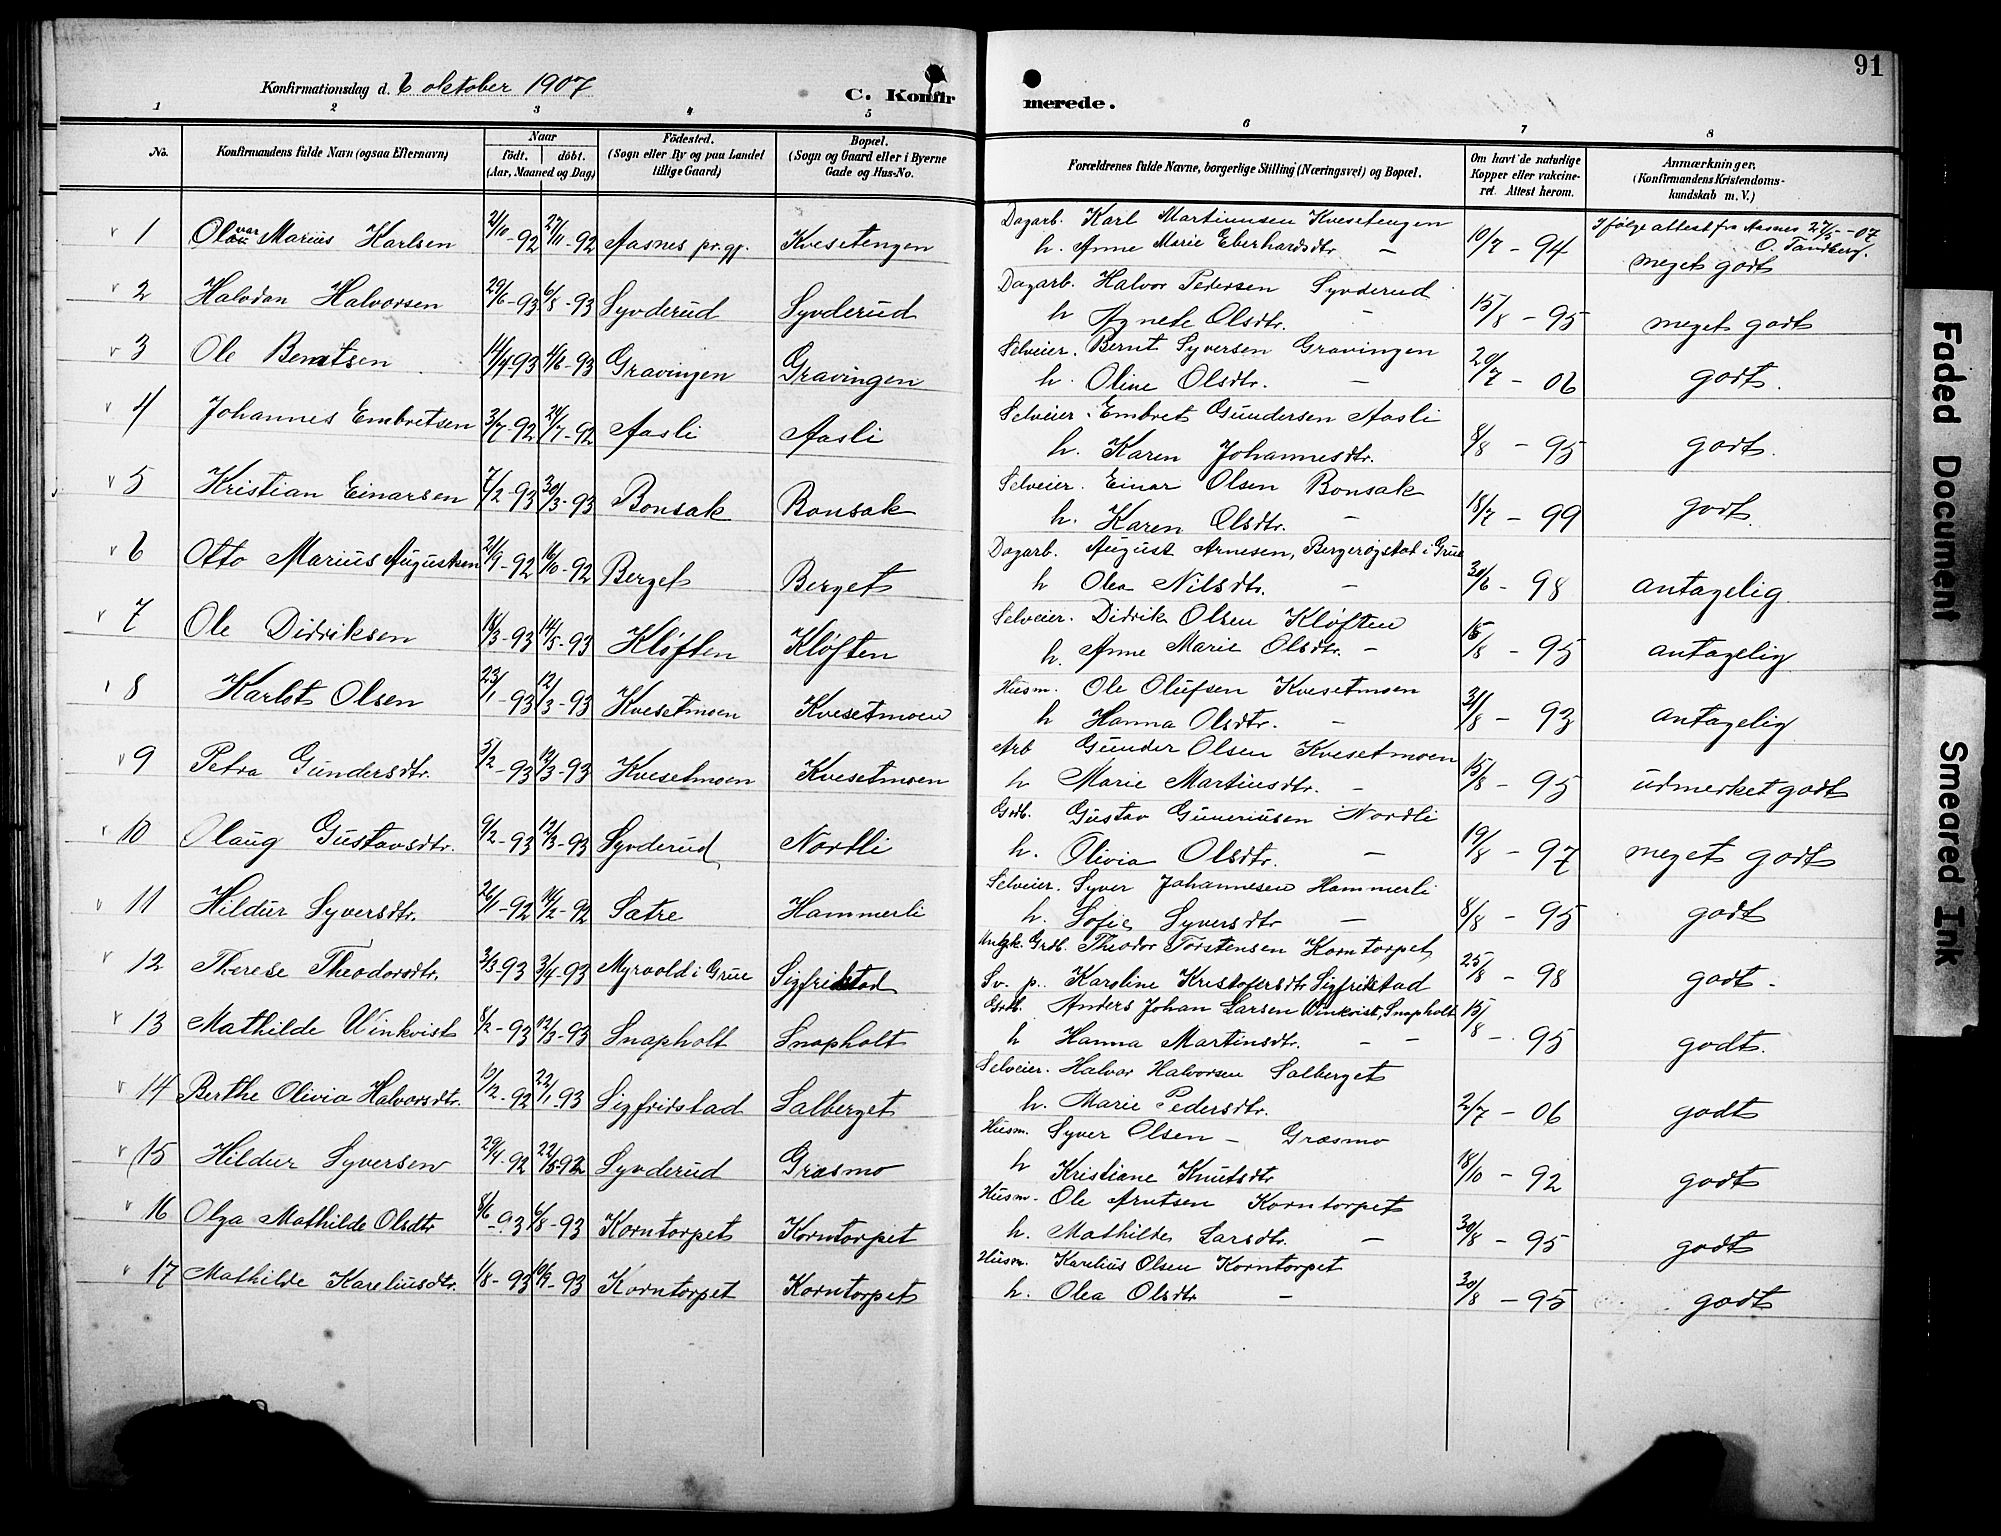 91
Konfirmationsdag d. 6 oktober 1907
C. Konfir merede.
1 2 3 4 5 6 7 8
No.
Konfirmandens fulde Navn (ogsaa Efternavn)
Naar
födt. döbt.
(Aar, Maaned og Dag)
Födested.
(Sogn eller By og paa Landet
tillige Gaard)
Bopæl.
(Sogn og Gaard eller i Byerne
Gade og Hus-No.
Forældrenes fulde Navne, borgerlige Stilling (Næringsvei) og Bopæl.
Om havt de naturlige
Kopper eller vakcine-
ret. Attest herom.
Anmærkninger.
(Konfirmandens Kristendoms-
kundskab m. V.)
1 Olavar Marius Karlsen 21/10-92 27/11-92 Aasnes pr.gj. Kvesetengen Dagarb. Karl Martinusen Kvesetengen
h. Anne Marie Eberhardsdtr. — 10/7 - 94 Ifølge attest fra Aasnes 27/5 -07
O. Tandberg.
meget godt
2 Halvdan Halvorsen 29/6-93 6/8-93 Syvderud Syvderud Dagarb. Halvor Pedersen Syvderud
h Agnete Olsdtr. - 15/8 - 95 meget godt
3 Ole Berntsen 14/4-93 4/6-93 Gravingen Gravingen Selveier. Bernt Syversen Gravingen
h. Oline Olsdtr. — 20/7 - 06 godt.
4 Johannes Embretsen 3/7-92 24/7-92 Aasli Aasli Selveier. Embret Gundersen Aasli
h. Karen Johannesdtr. 8/8 - 95 godt.
5 Kristian Einarsen 7/2-93 30/3-93 Bonsak Bonsak Selveier. Einar Olsen Bonsak
h. Karen Olsdtr. — 18/7 - 99 godt.
6 Otto Marius Augustsen 21/9-92 16/10-92 Berget Berget Dagarb. August Arnesen, Bergerøgstad i Grue
h Olea Nilsdtr. — 30/6 - 98 antagelig.
7 Ole Didriksen 18/3-93 14/5-93 Kløften Kløften Selveier. Didrik Olsen Kløften
h. Anne Marie Olsdtr. — 15/8 - 95 antagelig.
8 Karlot Olsen 23/1-93 12/3-93 Kvesetmoen Kvesetmoen Husm. Ole Olufsen Kvesetmoen
h Hanna Olsdtr. — 31/8 - 93 antagelig.
9 Petra Gundersdtr. 5/2-93 12/3-93 Kvesetmoen Kvesetmoen Arb Gunder Olsen Kvesetmoen
h Marie Martinsdtr. — 15/8 - 95 udmerket godt
10 Olaug Gustavsdtr. 9/2-93 12/3-93 Syvderud Nordli Grdb. Gustav Guneriusen Nordli
h. Olivia Olsdtr. — 19/8 - 97 meget godt
11 Hildur Syversdtr. 26/1-92 14/2-92 Sætre Hammerli Selveier. Syver Johannesen Hammerli
h. Sofie Syversdtr — 8/8 - 95 godt
12 Therese Theodorsdtr. 3/3-93 3/4-93 Myrvold i Grue Sigfridstad Ungk. Grdb. Theodor Torstensen Korntorpet
Sv. p. Karoline Kristofersdtr Sigfridstad 25/8 - 98 godt.
13 Mathilde Winkvist 8/2-93 12/3-93 Snapholt Snapholt Grdb. Anders Johan Larsen Winkvist, Snapholt
h Hanna Martinsdtr. — — 15/8 - 95 godt.
14 Berthe Olivia Halvorsdtr. 13/12-92 22/1-93 Sigfridstad Salberget Selveier. Halvor Halvorsen Salberget
h. Marie Pedersdtr. 2/7 - 06 godt
15 Hildur Syversen 29/4-92 22/5-92 Syvderud Græsmo Husm. Syver Olsen - Græsmo
h Kristiane Knutsdtr 18/10 - 92 godt
16 Olga Mathilde Olsdtr 8/6-93 6/8-93 Korntorpet Korntorpet Husm. Ole Arntsen Korntorpet
h. Mathilde Larsdtr. — 30/8 - 95 godt
17 Mathilde Kareliusdtr. 1/8-93 10/9-93 Korntorpet Korntorpet Husm. Karelius Olsen Korntorpet
h. Olea Olsdtr — 30/8 - 95 godt
Faded Document
Smeared Ink